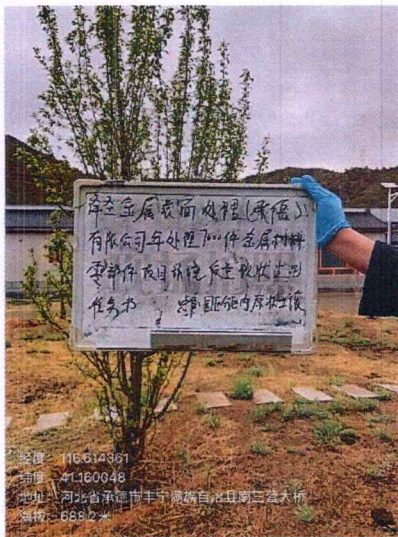 金属表面处理(承德)
有限公司年处理700件金属材料
零部件项目环境质量现状监测
任务书
经度: 116.614361
纬度: 41.160048
地址: 河北省承德市丰宁满族自治县南三营大桥
海拔: 688.2米